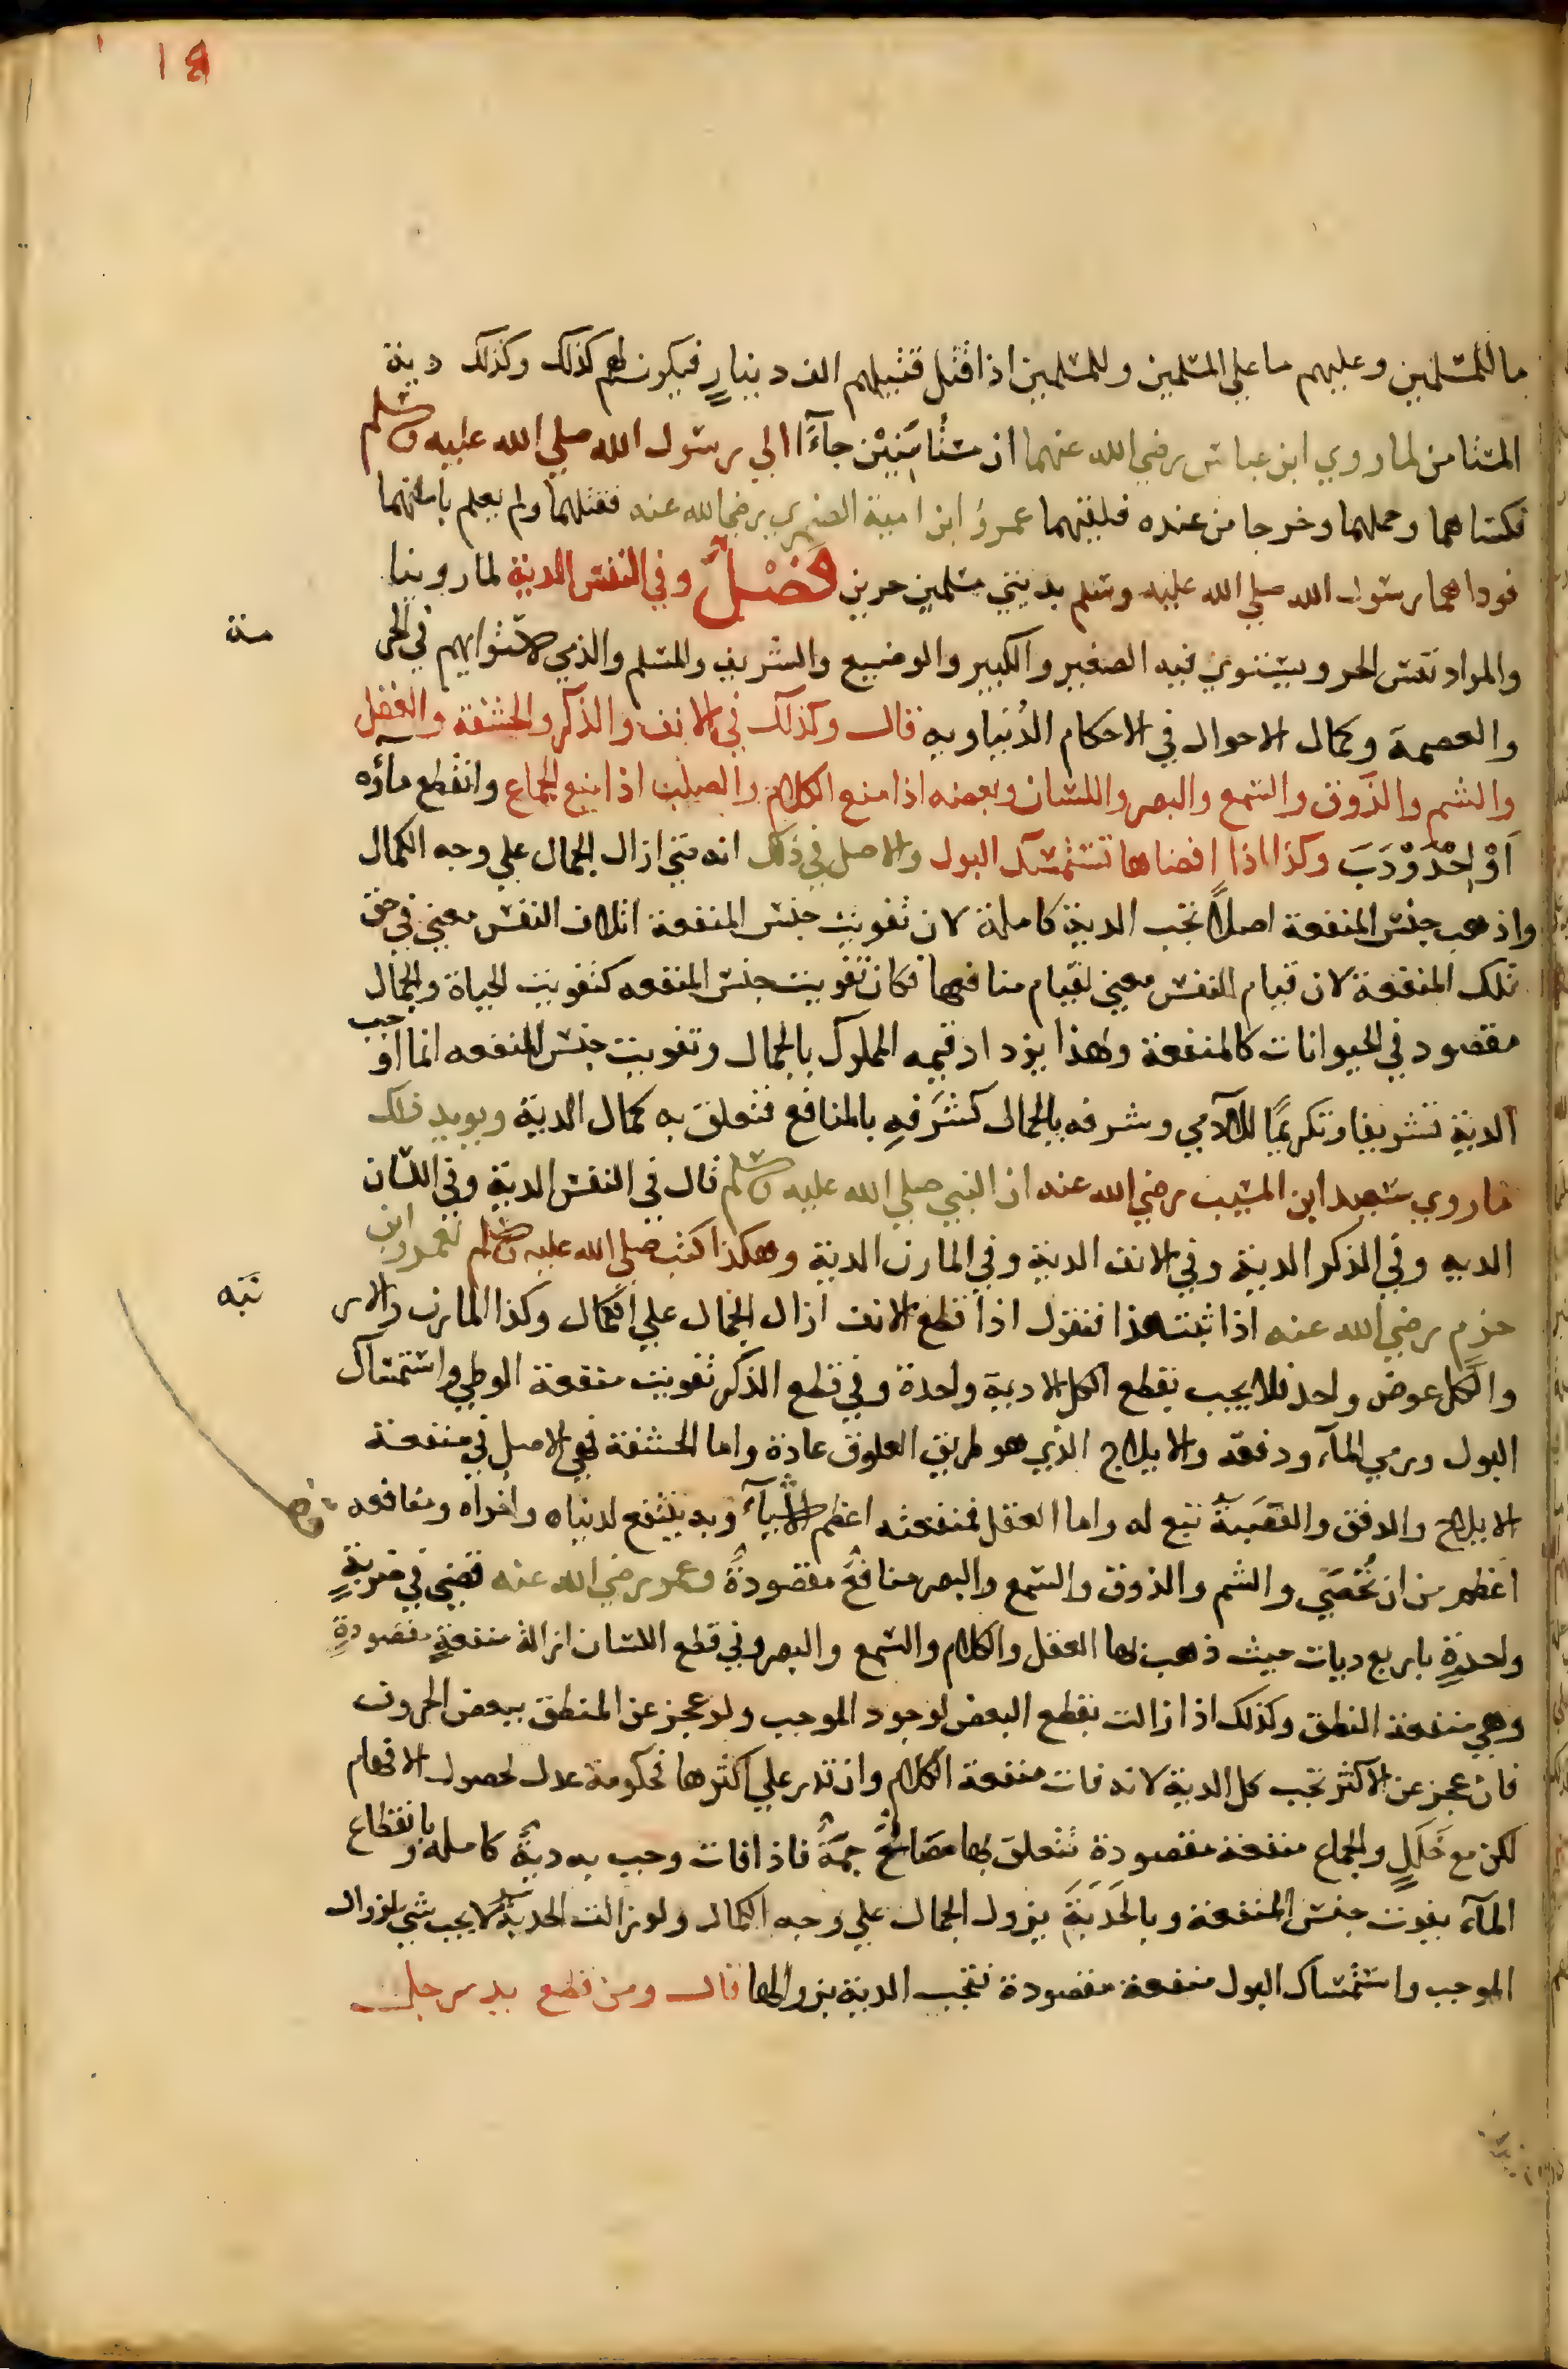 ما للمسلمين وعليهم ما علي المسلمين وللمسلمين اذا قتل قتيلهم الف دينارٍ فيكون لهم كذلك وكذلك دية
المستامن لما روي ابن عباس رضي الله عنهما ان مستأمَنِيْن جآءَآ الي رسول الله صلي الله عليه وسلم
فكساهما وحملهما وخرجا من عنده فلقيهما عمرو ابن امية الضمري رضي الله عنه فقتلهما ولم يعلم بامانهما
فوداهما رسول الله صلي الله عليه وسلم بديتي مسلمين حرين فَصْلٌ وفي النفس الدية لما روينا
والمراد نفس الحر ويستوي فيه الصغير والكبير والوضيع والشريف والمسلم والذمي لاستوايهم في الحر
مة
والعصمة وكمال الاحوال في الاحكام الدُنياويه قال وكذلك في الانف والذكر والحشفة والعقل
والشم والذوق والسمع والبصر واللسان وبعضه اذا منع الكلام والصلب اذا منع الجماع وانقطع مآؤه
اَوْ اِحْدَوْدَبَ وكذا اذا افضاها تستمسك البول والاصل في ذلك انه متي ازال الجمال علي وجه الكمال
واذهب جنس المنفعة اصلاً تجب الدية كاملة لان تفويت جنس المنفعة اتلاف النفس معني في حق
تلك المنفعة لان قيام النفس معني لقيام منافعها فكان تفويت جنس المنفعه كتفويت الحياة والجمال
مقصود في الحيوانات كالمنفعة ولهذا يزداد قيمه المملوك بالجمال وتفويت جنس المنفعه انما اوجب
الدية تشريفا وتكريمًا للآدمي وشرفه بالجمال كشَرَفهِ بالمنافع فتعلق به كمال الدية ويويد ذلك
ما روي سعيد ابن المسيب رضي الله عنه ان النبي صلي الله عليه وسلم قال في النفس الدية وفي اللسان
الديه وفي الذكر الدية وفي الانف الدية وفي المارن الدية وهكذا كتب صلي الله عليه وسلم لعمرو ابن
حزم رضي الله عنه اذا ثبت هذا فنقول اذا قطع الانف ازال الجمال علي الكمال وكذا المارن والار
نبَه
والكل عوض واحد فلا يجب بقطع الكل الا دية واحدة وفي قطع الذكر تفويت منفعة الوطي واستمساك
البول ورمي المآء ودفقه والايلاج الذي هو طريق العلوق عادة واما الحشفة فهي الاصل في منفعة
الايلاج والدفق والقَصَبةُ تبع له واما العقل فمنفعته اعظم الاشيآء وبه ينتفع لدنياه واُخراه ومنافعه
اعظم من ان تُحْصَي والشم والذوق والسمع والبصر منافعُ مقصودةٌ وعمر رضي الله عنه قضي في ضربةٍ
واحدةٍ باربع ديات حيث ذهب بها العقل والكلام والسمع والبصر وفي قطع اللسان ازالة منفعةٍ مقصودةٍ
وهي منفعة النطق وكذلك اذا زالت بقطع البعض لوجود الموجب ولو عجز عن المنطق ببعض الحروف
فان عجز عن الاكثر تجب كل الدية لانه فات منفعة الكلام وان قدر علي اكثرها فحكومة عدل لحصول الافهام
لكن مع خَلَلٍ والجماع منفعة مقصودة تتعلق بها مَصَالحُ جمّةٌ فاذا فات وجب به ديةٌ كامله وبانقطاع
المآء يفوت جنس المنفعة وبالحَدَبَةِ يزول الجمال علي وجه الكمال ولو زالت الحدبةُ لا يجب شي لزوال
الموجب واستمساك البول منفعة مقصودة فتجب الدية بزوالها قال ومن قطع يد رجل